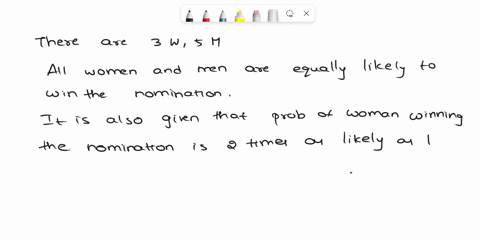 There are 3 W, 5 M
All women and men are equally likely to
win the nomination.
It is also given that prob of woman winning
the nomination is 2 times as likely as